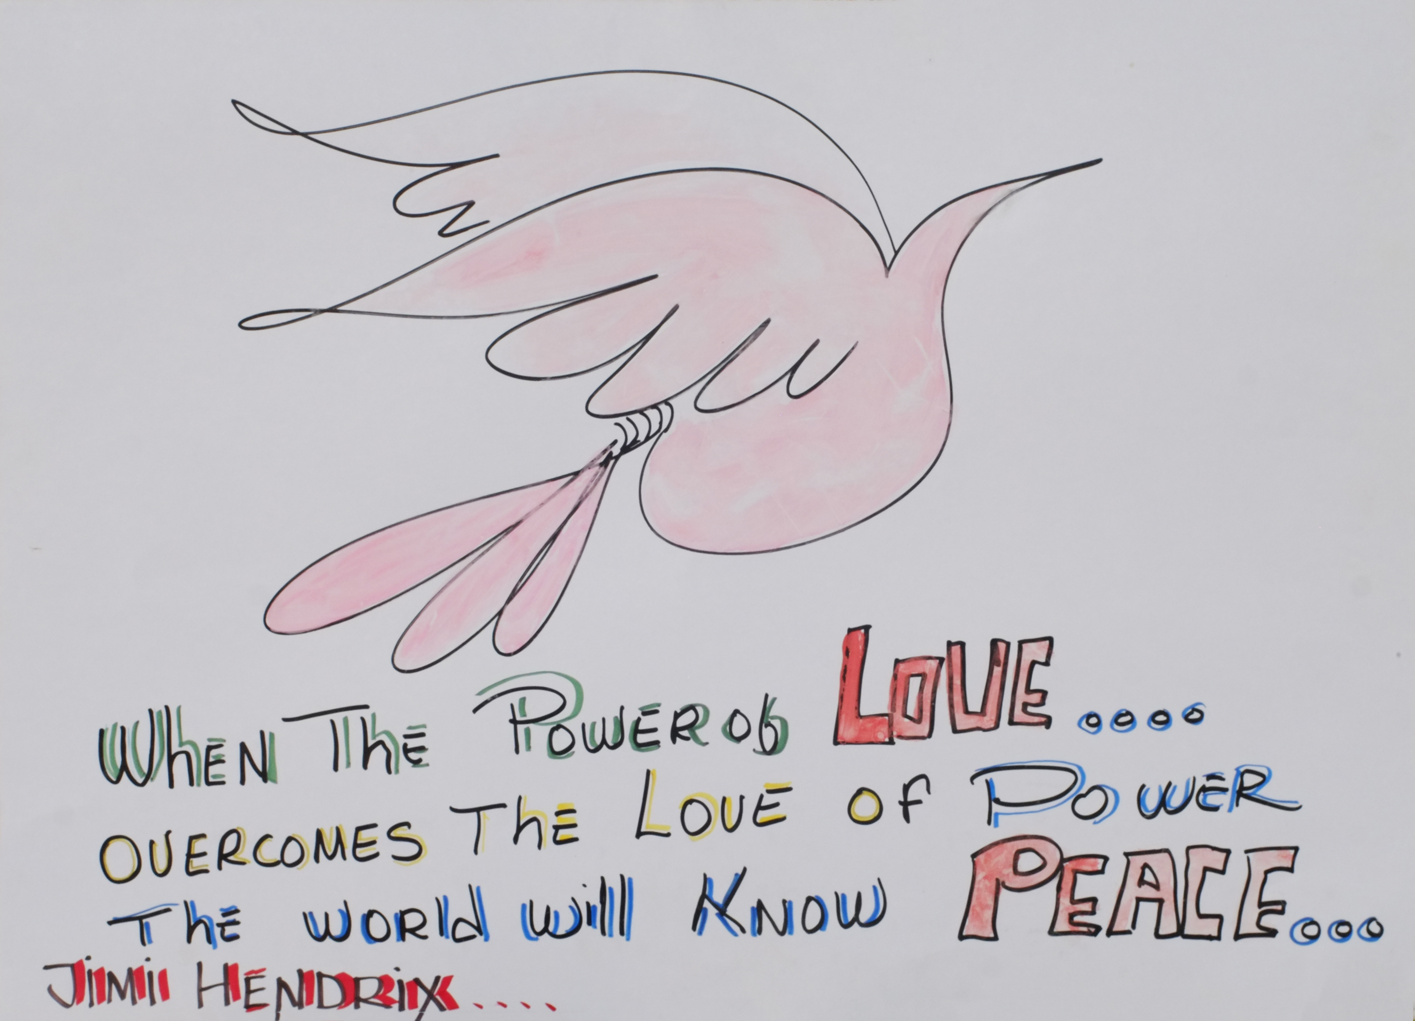 When The Power of LOVE....
OVERCOMES The LOVE of POWER
The world will Know PEACE...
Jimi HENDRix....